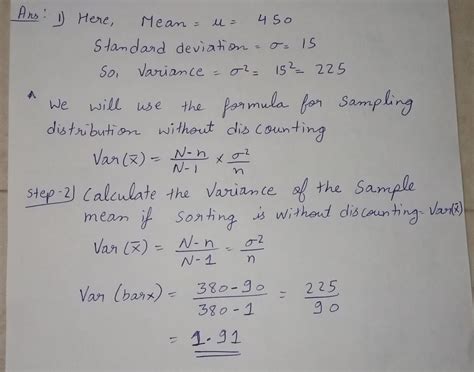 Ans: 1) Here, Mean = μ = 450
Standard deviation = σ = 15
So, Variance = σ² = 15² = 225
^ We will use the formula for Sampling
distribution without discounting
Var(x̄) = N-n/N-1 × σ²/n
Step-2) Calculate the Variance of the Sample
mean if Sorting is without discounting = Var(x̄)
Var (x̄) = N-n/N-1 = σ²/n
Var (barx) = 380-90/380-1 = 225/90
= 1.91